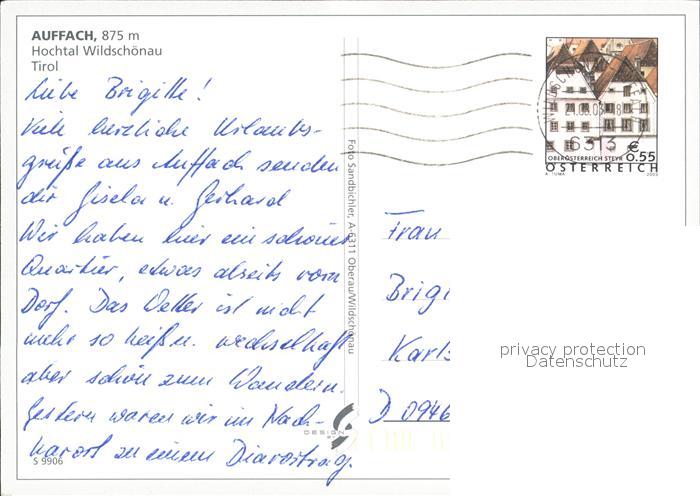 AUFFACH, 875 m
Hochtal Wildschönau
Tirol
Liebe Brigitte!
Viele herzliche Urlaubs-
grüße aus Auffach senden
dir Gisela u. Gerhard
Wir haben hier ein schönes
Quartier, etwas abseits vom
Dorf. Das Wetter ist nicht
mehr so heiß u. wechselhaft
aber schön zum Wandern.
Gestern waren wir im Nach-
barort zu einem Diavortrag.
S 9906
Foto Sandbichler, A-6311 Oberau/Wildschönau
DESIGN
6313
€ 0.55
OBERÖSTERREICH STEYR
ÖSTERREICH
A. TUMA 2003
Frau
Brigi
Karls
D 0946
privacy protection
Datenschutz